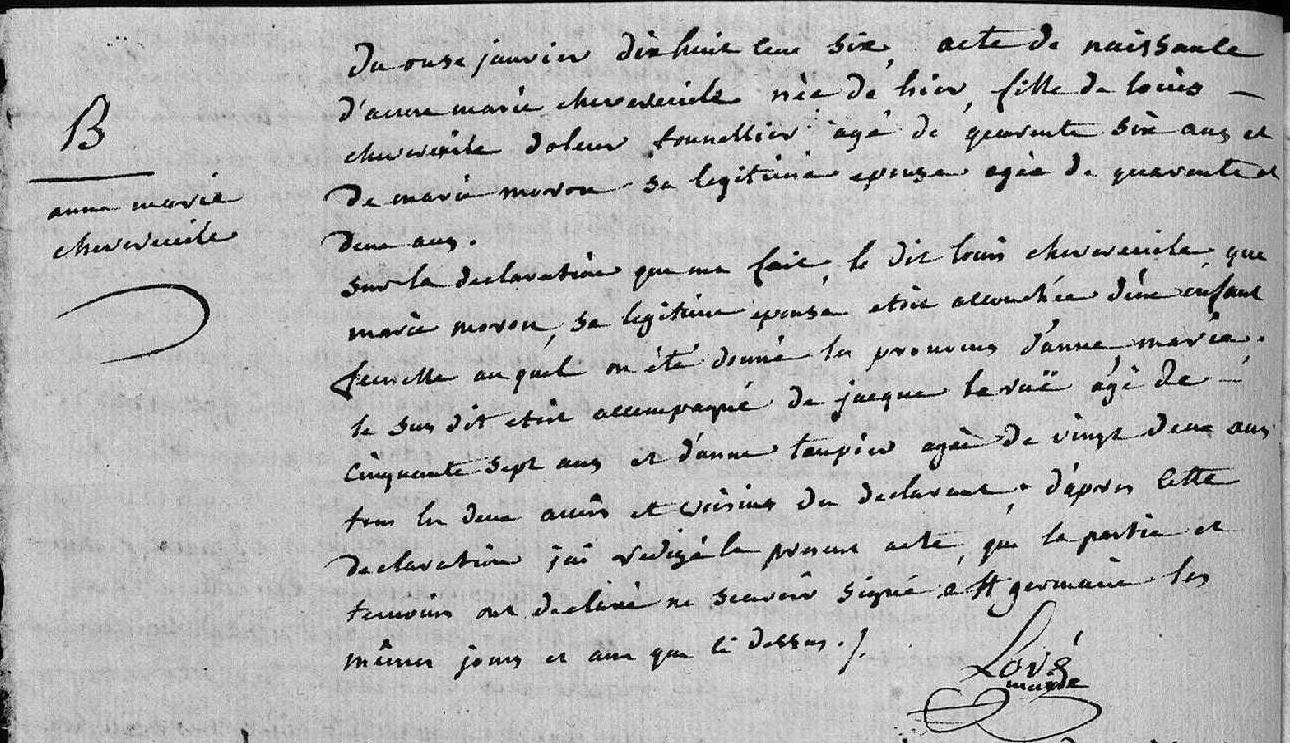 B
anne marie
chevereuile
Du onse janvier dix huit cent six, acte de naissance
d'anne marie chevereuile née de hier, fille de loüis —
chevereüile doleur tonnellier agé de quarente six ans et
de marie moron sa legitime epouse agée de quarente et
deux ans.
sur la declaration que ma fait, le dit loüis chevereuile, que
marie moron, sa legitime epouse etoit accouchée d'une enfant
femelle au quel on été donné les prenoms d'anne marie.
le sus dit etoit accompagné de jacque la ruë agé de —
cinquante sept ans et d'anne taupier agée de vingt deux ans
tous les deux amis et voisins du declarant. d'apres cette
declaration jai redigé le present acte, que la partie et
temoins ont declaré ne scavoir signé a St germain les
mêmes jours et ans que ci dessus ./.
Lové
maire